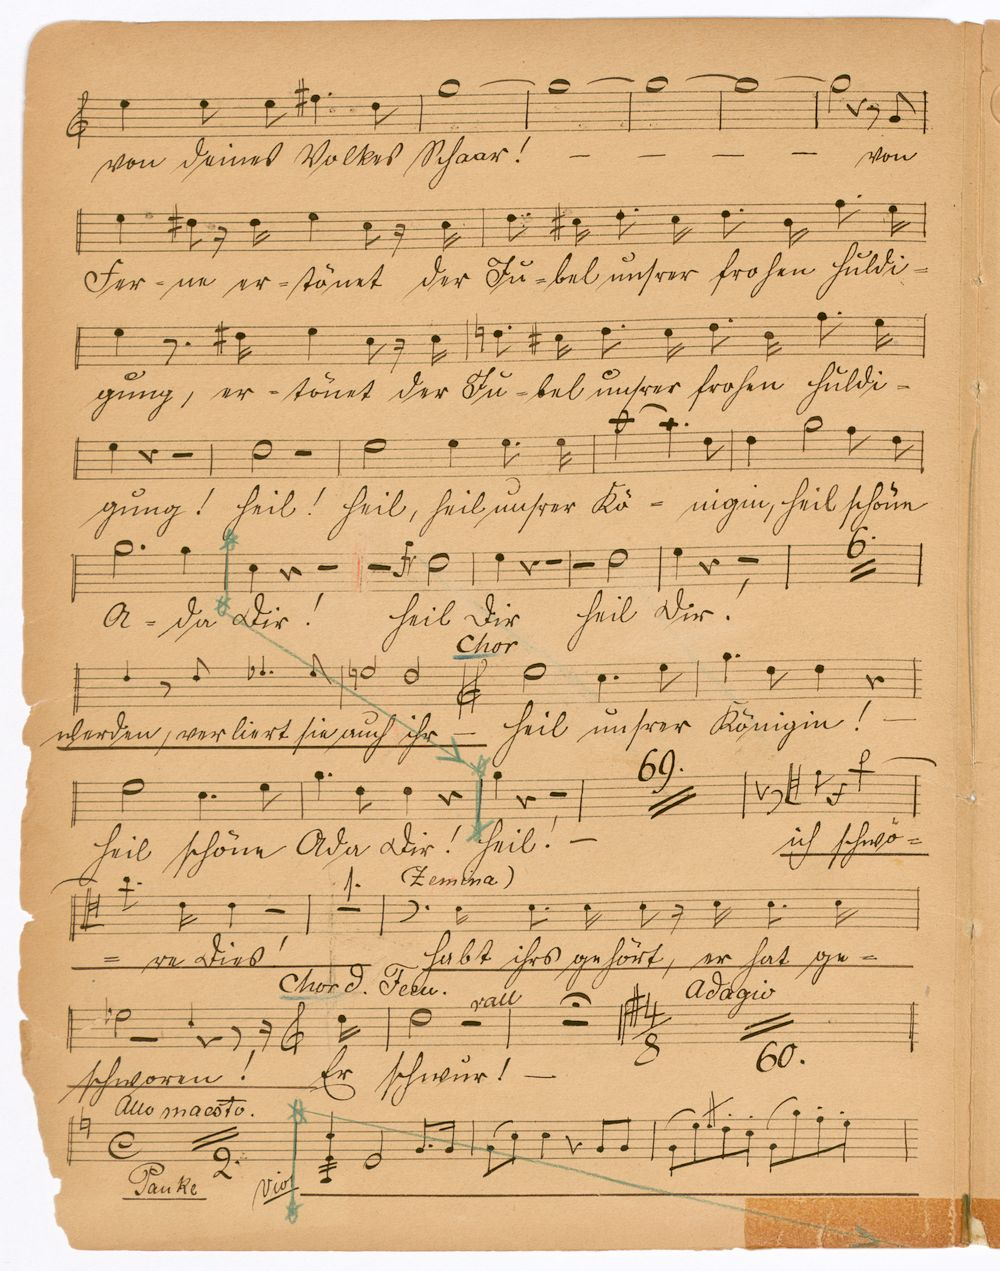 von deines Volkes Schaar! — — — — von
Fer-ne er-tönet der Ju-bel unsrer frohen Huldi-
gung, er-tönet der Ju-bel unsrer frohen Huldi-
gung! Heil! Heil, Heil unsrer Kö-nigin, Heil schöne
6.
A-da Dir! Heil Dir Heil Dir!
Chor
werden, verliert sie auch ihr — Heil unsrer Königin! —
69.
Heil schöne Ada Dir! Heil! — ich schwö-
1. (Zemina)
=re Dies! habt ihrs gehört, er hat ge=
Chor d. Feen. rall Adagio
4/8
60.
schworen! Er schwur! —
Allo maesto.
2.
Pauke Viol